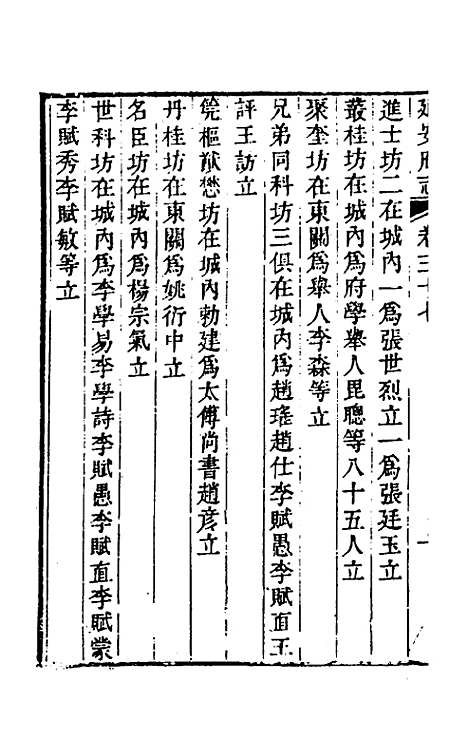 延安府志 卷三十七
進士坊二在城內一為張世烈立一為張廷玉立
叢桂坊在城內為府學舉人毘聰等八十五人立
聚奎坊在東關為舉人李森等立
兄弟同科坊三俱在城內為趙瑤趙仕李賦愚李賦直王
評王訪立
筦樞猷懋坊在城內勅建為太傅尚書趙彥立
丹桂坊在東關為姚衍中立
名臣坊在城內為楊宗氣立
世科坊在城內為李學易李學詩李賦愚李賦直李賦蒙
李賦秀李賦敏等立